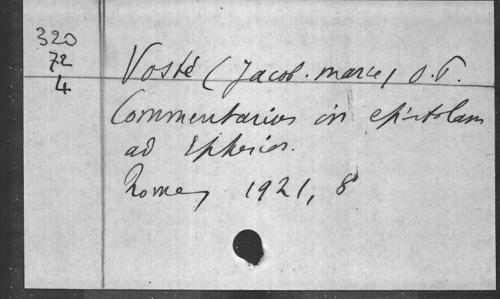 320
72
4
Vosté (Jacob. marie) O.P.
Commentarius in epistolam
ad Ephesios.
Rome, 1921, 8°